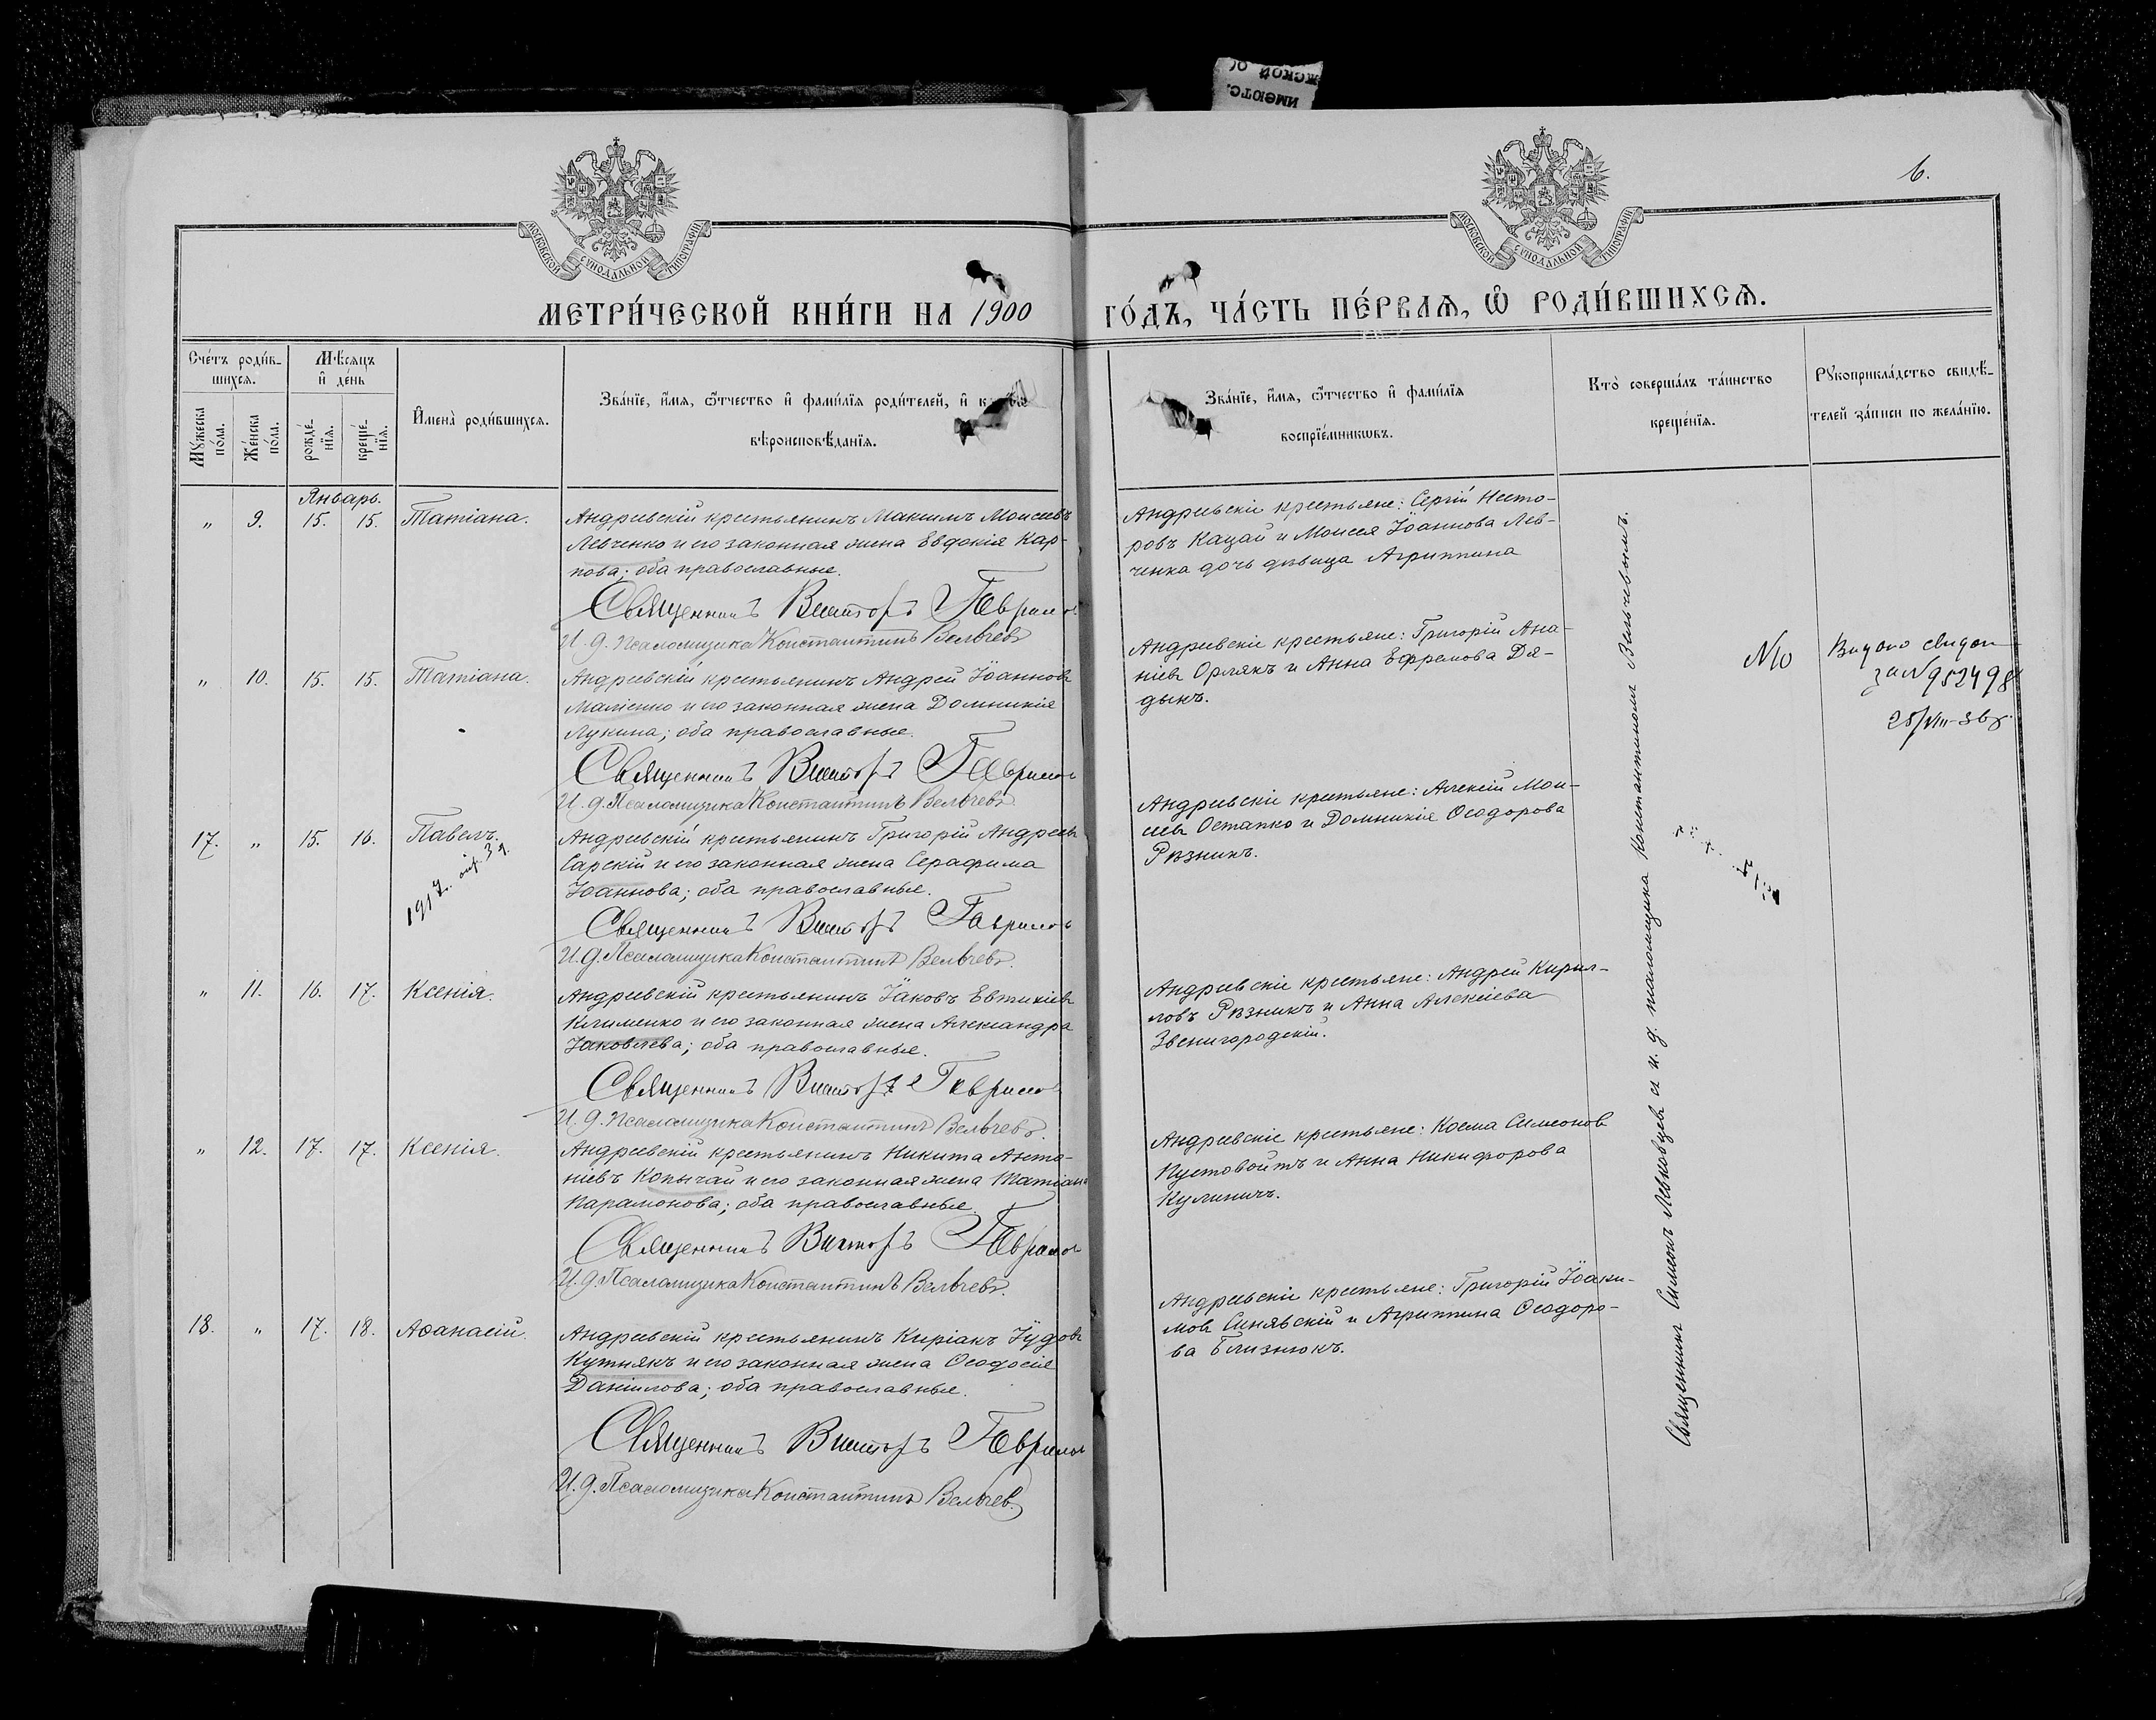 6.
МОСКОВСКОЙ СУНОДАЛЬНОЙ ТИПОГРАФІИ
МОСКОВСКОЙ СУНОДАЛЬНОЙ ТИПОГРАФІИ
МЕТРИ́ЧЕСКОЙ КНИ́ГИ НА 1900 ГО́ДЪ, ЧА́СТЬ ПЕ́РВАѦ, Ѡ҆ РОДИ́ВШИХСѦ.
Сче́тъ роди́в-
шихсѧ.
Мꙋ́жеска по́ла.
Же́нска по́ла.
Мѣ́сѧцъ
и҆ де́нь
рожде́-
нїѧ.
креще́-
нїѧ.
И҆мена̀ роди́вшихсѧ.
Зва́нїе, и҆́мѧ, ѻ҆́тчество и҆ фами́лїѧ роди́телей, и҆
вѣроисповѣ́данїѧ.
Зва́нїе, и҆́мѧ, ѻ҆́тчество и҆ фами́лїѧ
воспрїе́мникѡвъ.
Кто̀ соверша́лъ та́инство
креще́нїѧ.
Рꙋкоприкла́дство свидѣ́-
телей за́писи по жела́нїю.
Январь.
„ 9. 15. 15. Татіана.
Андреевскій крестьянинъ Максимъ Моисеевъ
Левченко и его законная жена Евдокія Кар-
пова; оба православные.
Священникъ Викторъ Гаврилов
И. д. Псаломщика Константинъ Вельчевъ
Андреевскіе крестьяне: Сергій Несто-
ровъ Кацай и Моисея Іоаннова Лев-
ченка дочь дѣвица Агриппина
„ 10. 15. 15. Татіана.
Андреевскій крестьянинъ Андрей Іоанновъ
Маліенко и его законная жена Домникія
Лукина; оба православные.
Священникъ Викторъ Гаврилов
И. д. Псаломщика Константинъ Вельчевъ
Андреевскіе крестьяне: Григорій Ана-
ніевъ Орлякъ и Анна Ефремова Дя-
дыкъ.
N10
Видано свидоц
за N 952498
25/VIII-36 р.
17. „ 15. 16. Павелъ.
1917
Андреевскій крестьянинъ Григорій Андреевъ
Сарскій и его законная жена Серафима
Іоаннова; оба православные.
Священникъ Викторъ Гаврилов
И. д. Псаломщика Константинъ Вельчевъ.
Андреевскіе крестьяне: Алексій Мои-
сеевъ Остапко и Домникія Ѳеодорова
Рѣзникъ.
„ 11. 16. 17. Ксенія.
Андреевскій крестьянинъ Іаковъ Евтихіевъ
Клименко и его законная жена Александра
Іаковлева; оба православные.
Священникъ Викторъ Гаврилов
И. д. Псаломщика Константинъ Вельчевъ.
Андреевскіе крестьяне: Андрей Кирил-
ловъ Рѣзникъ и Анна Алексіева
Звенигородскій.
„ 12. 17. 17. Ксенія.
Андреевскій крестьянинъ Никита Анто-
ніевъ Копычай и его законная жена Татіана
Парамонова; оба православные.
Священникъ Викторъ Гаврилов
И. д. Псаломщика Константинъ Вельчевъ.
Андреевскіе крестьяне: Косма Симеоновъ
Пустовойтъ и Анна Никифорова
Кулиничъ.
18. „ 17. 18. Аѳанасій.
Андреевскій крестьянинъ Киріакъ Іудовъ
Кутнякъ и его законная жена Ѳеодосія
Даніилова; оба православные.
Священникъ Викторъ Гаврилов
И. д. Псаломщика Константинъ Вельчев.
Андреевскіе крестьяне: Григорій Іоаки-
мовъ Синявскій и Агриппина Ѳеодоро-
ва Близнюкъ.
Священникъ Симеонъ Левковцевъ съ и. д. псаломщика Константиномъ Вельчевымъ.